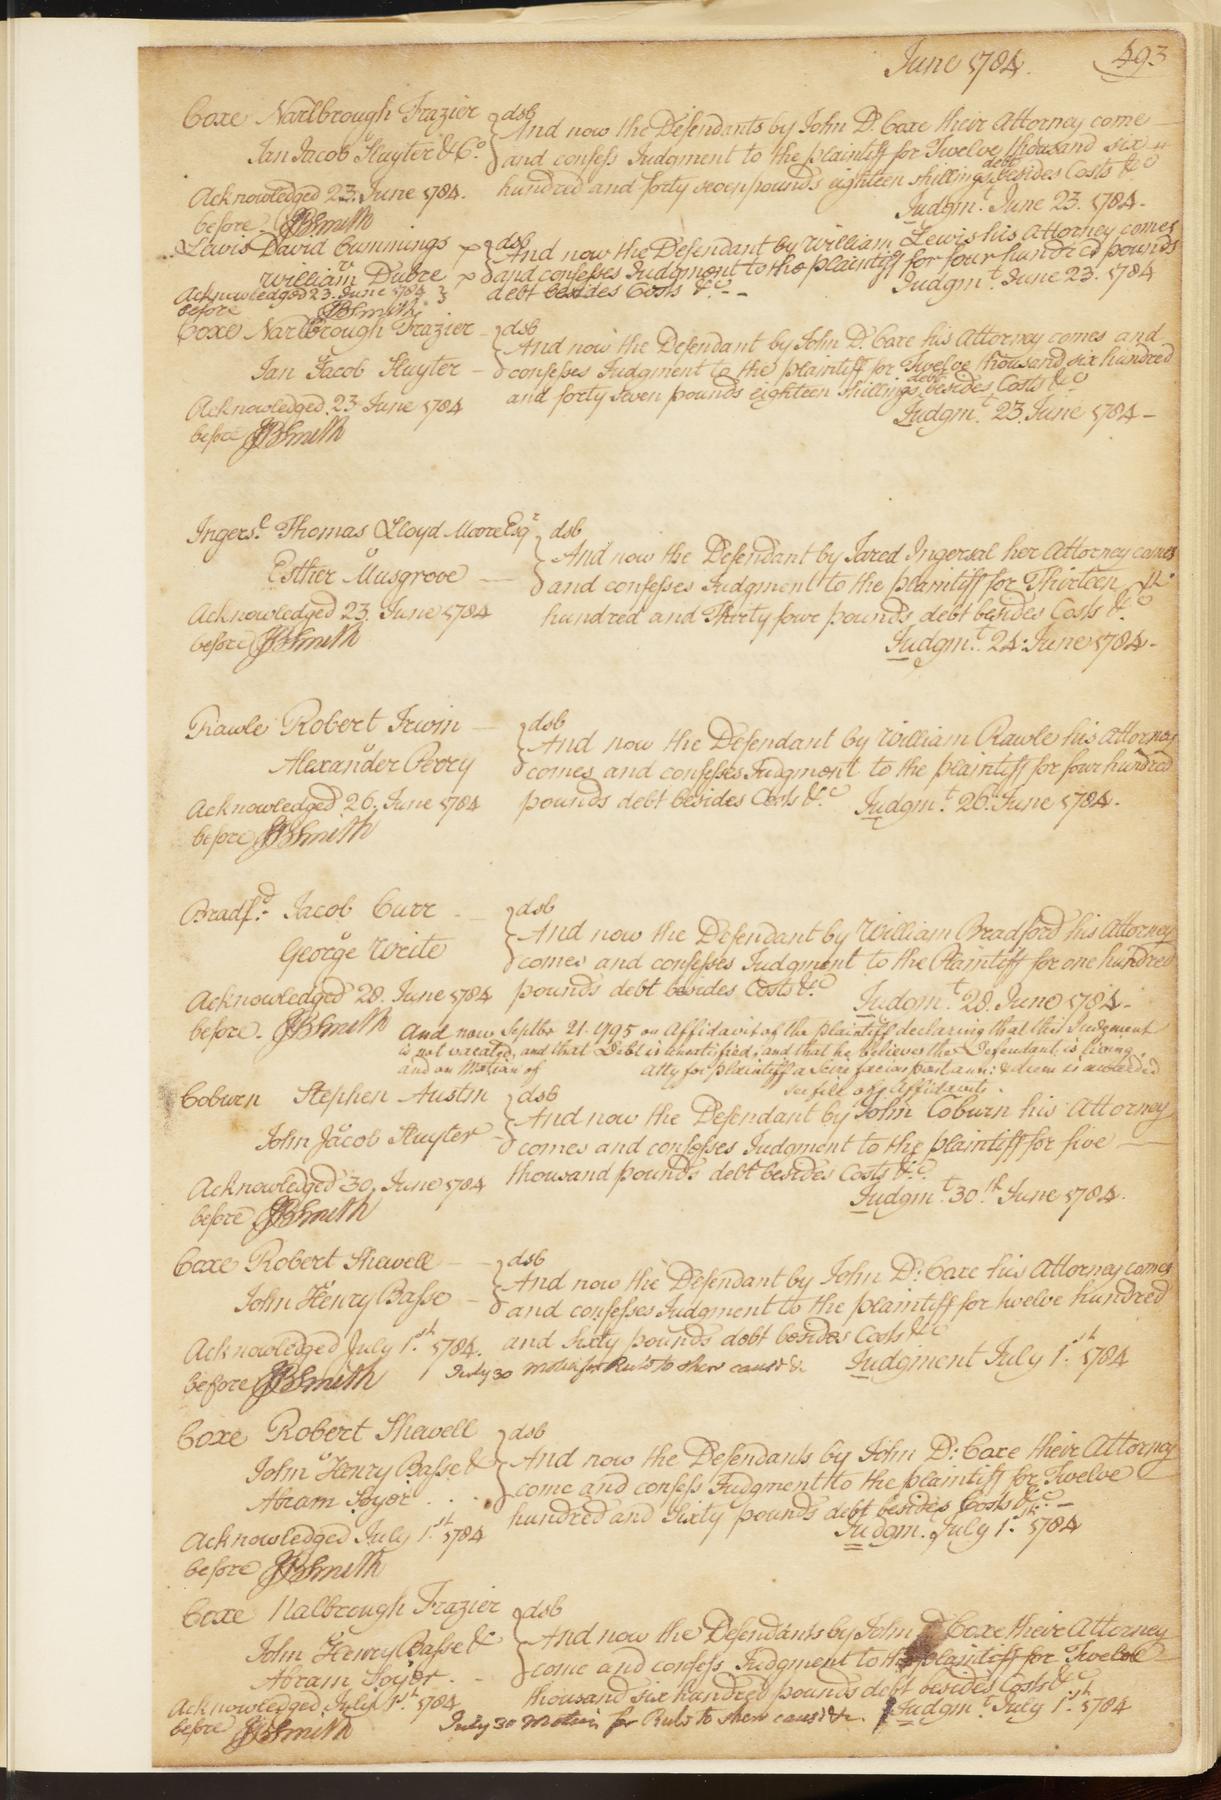 June 1784. 493
Coxe Narlbrough Frazier } dsb
v And now the Defendants by John D. Coxe their Attorney come
Jan Jacob Sluyter & Co. and confess Judgment to the plaintiff for Twelve thousand six
hundred and forty seven pounds eighteen shillings debt besides Costs &c
Acknowledged 23. June 1784. Judgmt. June 23. 1784.
before JBSmith
Lewis David Cummings } dsb
v And now the Defendant by William Lewis his Attorney comes
William Dubre and confesses Judgment to the plaintiff for four hundred pounds
Acknowledged 23. June 1784 debt besides Costs &c Judgmt. June 23. 1784
before JBSmith
Coxe Narlbrough Frazier } dsb
And now the Defendant by John D. Coxe his Attorney comes and
Jan Jacob Sluyter confesses Judgment to the plaintiff for Twelve thousand six hundred
and forty seven pounds eighteen shillings debt besides Costs &c
Acknowledged 23 June 1784 Judgmt. 23. June 1784
before JBSmith
Ingersl. Thomas Lloyd Moore Esqr } dsb
v And now the Defendant by Jared Ingersol her Attorney comes
Esther Musgrove and confesses Judgment to the plaintiff for Thirteen
Acknowledged 23. June 1784 hundred and Thirty four pounds debt besides Costs &c
before JBSmith Judgmt. 24. June 1784.
Rawle Robert Irwin } dsb
v And now the Defendant by William Rawle his Attorney
Alexander Perry comes and confesses Judgment to the plaintiff for four hundred
Acknowledged 26. June 1784 pounds debt besides Costs &c Judgmt. 26. June 1784.
before JBSmith
Bradfd. Jacob Curr } dsb
v And now the Defendant by William Bradford his Attorney
George Write comes and confesses Judgment to the Plaintiff for one hundred
Acknowledged 28. June 1784 pounds debt besides Costs &c Judgmt. 28. June 1784.
before JBSmith And now Septbr 21. 1795 on Affidavit of the plaintiff declaring that this Judgement
is not vacated, and that Debt is unsatisfied, and that he believes the Defendant is living
and on Motion of Atty for plaintiff a Scire facias post ann: & diem is awarded
see file of Affidavits.
Coburn Stephen Austin } dsb
v And now the Defendant by John Coburn his Attorney
John Jacob Sluyter comes and confesses Judgment to the plaintiff for five
Acknowledged 30. June 1784 thousand pounds debt besides Costs &c
before JBSmith Judgmt. 30th June 1784.
Coxe Robert Shewell } dsb
v And now the Defendant by John D. Coxe his Attorney comes
John Henry Basse and confesses Judgment to the plaintiff for twelve hundred
Acknowledged July 1st. 1784. and sixty pounds debt besides Costs &c
before JBSmith July 30 Motion for Rule to shew cause &c Judgment July 1st. 1784
Coxe Robert Shewell } dsb
v And now the Defendants by John D. Coxe their Attorney
John Henry Basse & come and confess Judgment to the plaintiff for Twelve
Abram Soyer hundred and Sixty pounds debt besides Costs &c
Acknowledged July 1st. 1784 Judgm. July 1st. 1784
before JBSmith
Coxe Nalbrough Frazier } dsb
v And now the Defendants by John D Coxe their Attorney
John Henry Basse & come and confess Judgment to the plaintiff for Twelve
Abram Soyer thousand six hundred pounds debt besides Costs &c
Acknowledged July 1st. 1784 Judgmt. July 1st. 1784
before JBSmith July 30 Motion for Rule to shew cause &c.